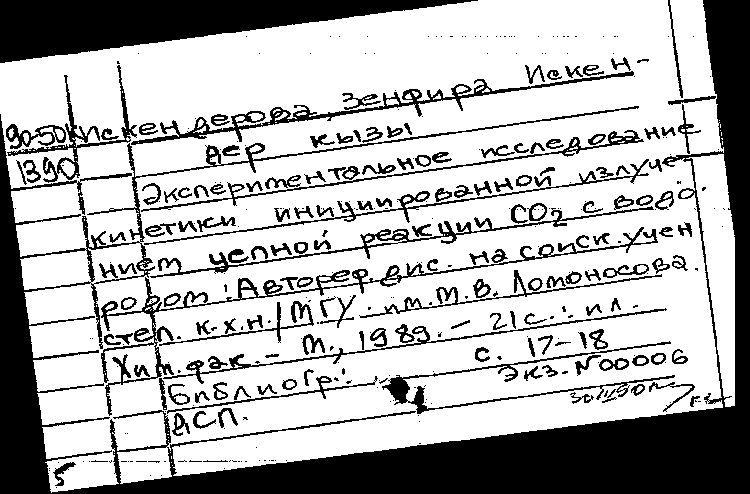 90-50К Искендерова, Зенфира Искен-
1390 дер кызы
Экспериментальное исследование
кинетики инициированной излуче-
нием цепной реакции CO2 с водо-
родом: Автореф. дис. на соиск. учен
степ. к.х.н./МГУ им. М.В. Ломоносова.
Хим. фак. - М., 1989. - 21 с.: ил.
Библиогр.: с. 17-18
ДСП. Экз. N00006
5